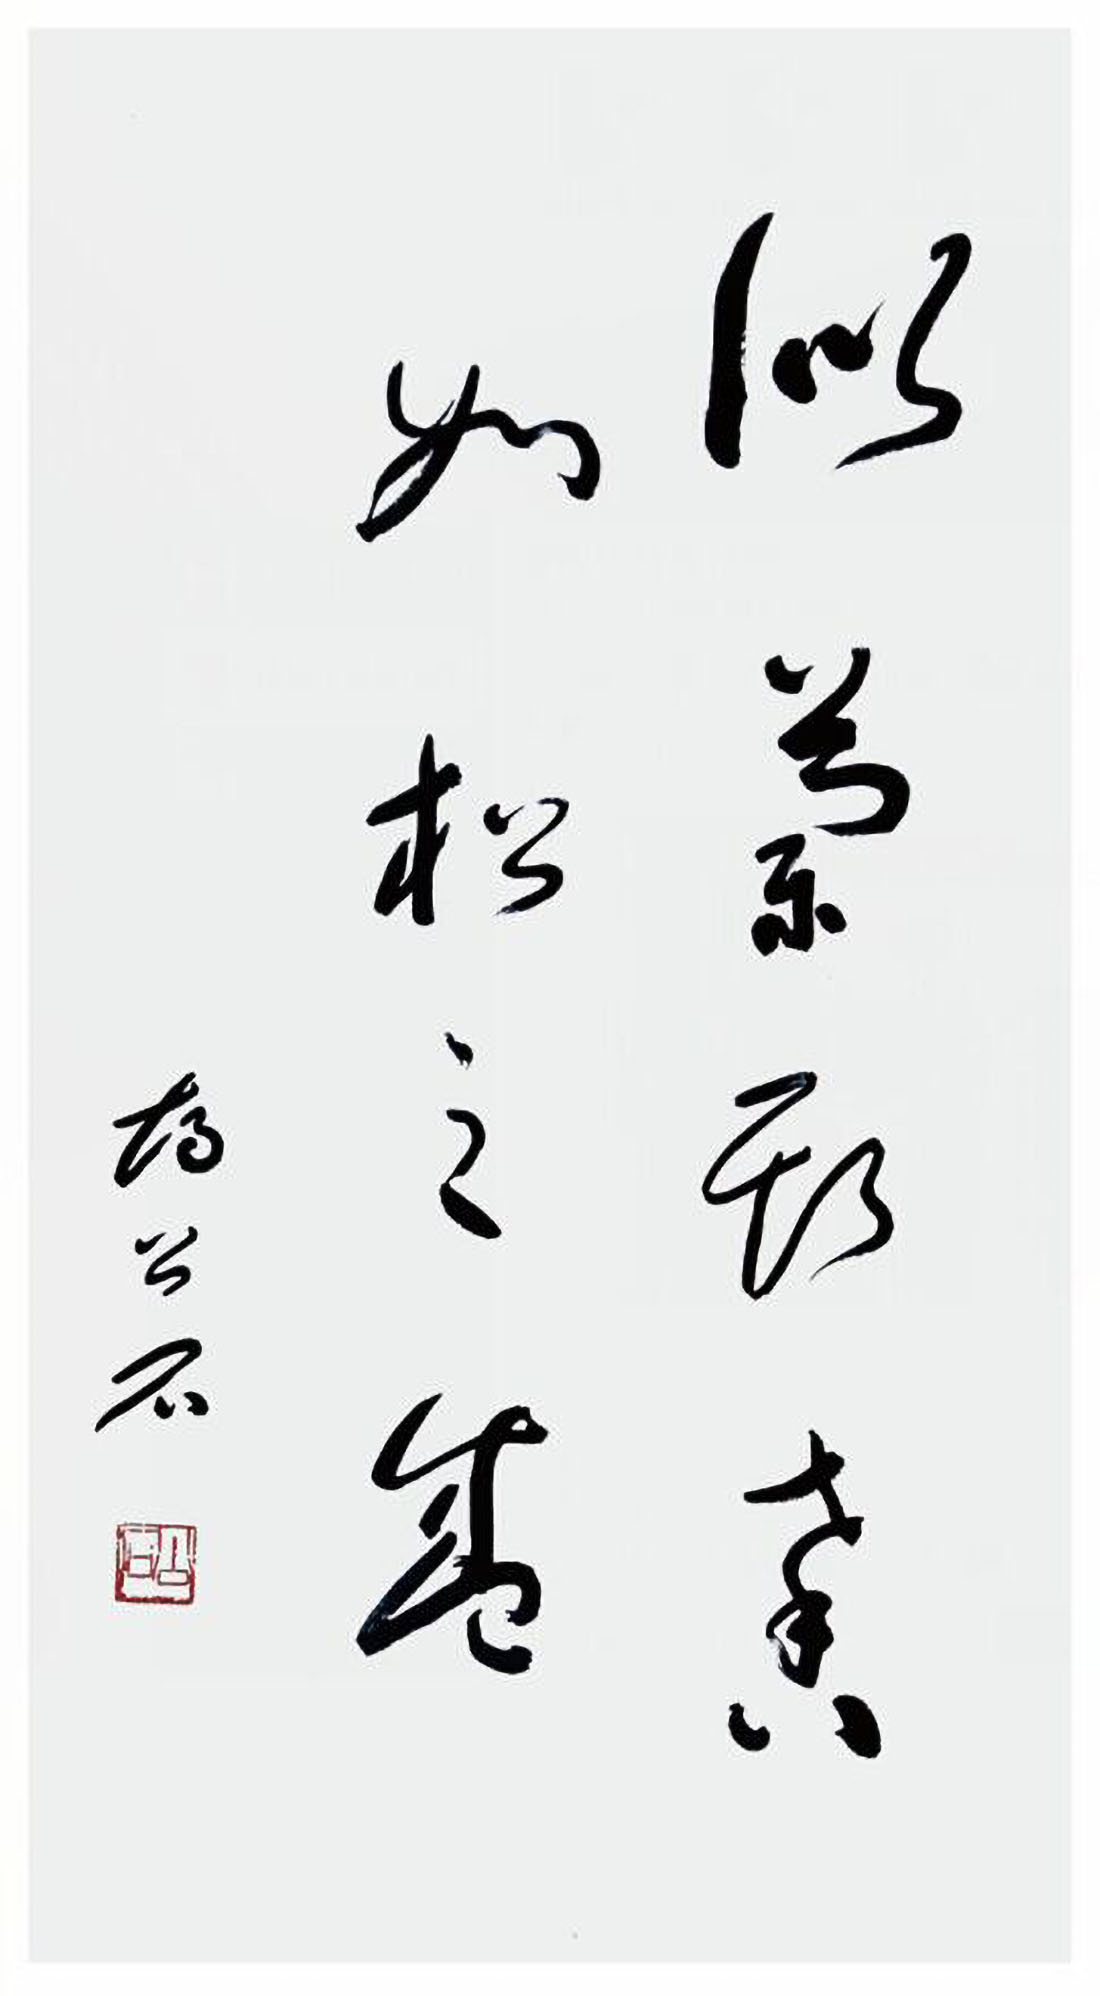 似兰斯馨
如松之盛
杨公石